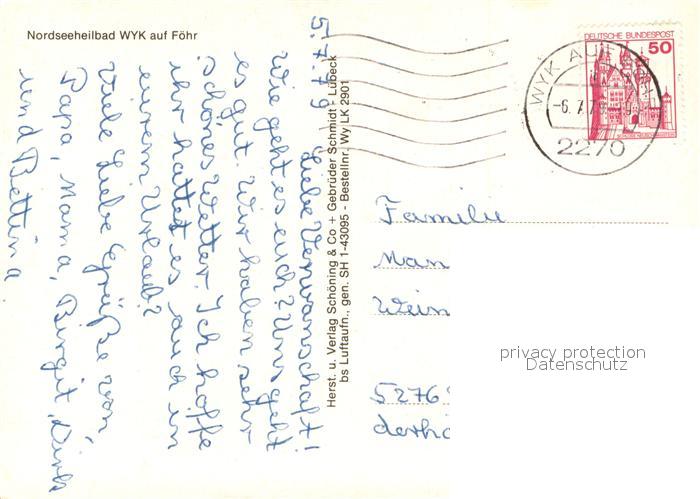 Nordseeheilbad WYK auf Föhr
5.7.79
Liebe Verwanschaft!
Wie geht es euch? Uns geht
es gut. Wir haben sehr
schönes Wetter. Ich hoffe
ihr hattet es auch in
eurem Urlaub?
Viele Liebe Grüße von,
Papa, Mama, Birgit, Dirk
und Bettina
Herst. u. Verlag Schöning & Co + Gebrüder Schmidt - Lübeck
bs Luftaufn., gen. SH 1-43095 - Bestellnr. Wy LK 2901
DEUTSCHE BUNDESPOST
50
WYK AUF FÖHR
-6.7.79
2270
Familie
Man
Wein
5276
privacy protection
Datenschutz